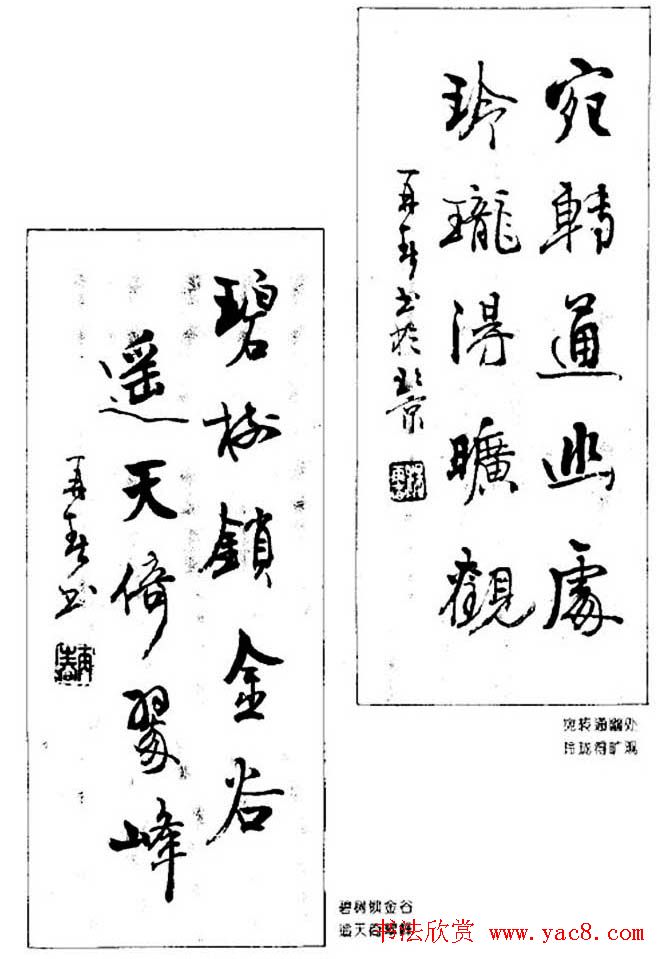 宛轉通幽處
玲瓏得曠觀
再春书於北京
宛转通幽处
玲珑得旷观
碧樹鎖金谷
遥天倚翠峰
再春书
碧树锁金谷
书法欣赏 www.yac8.com